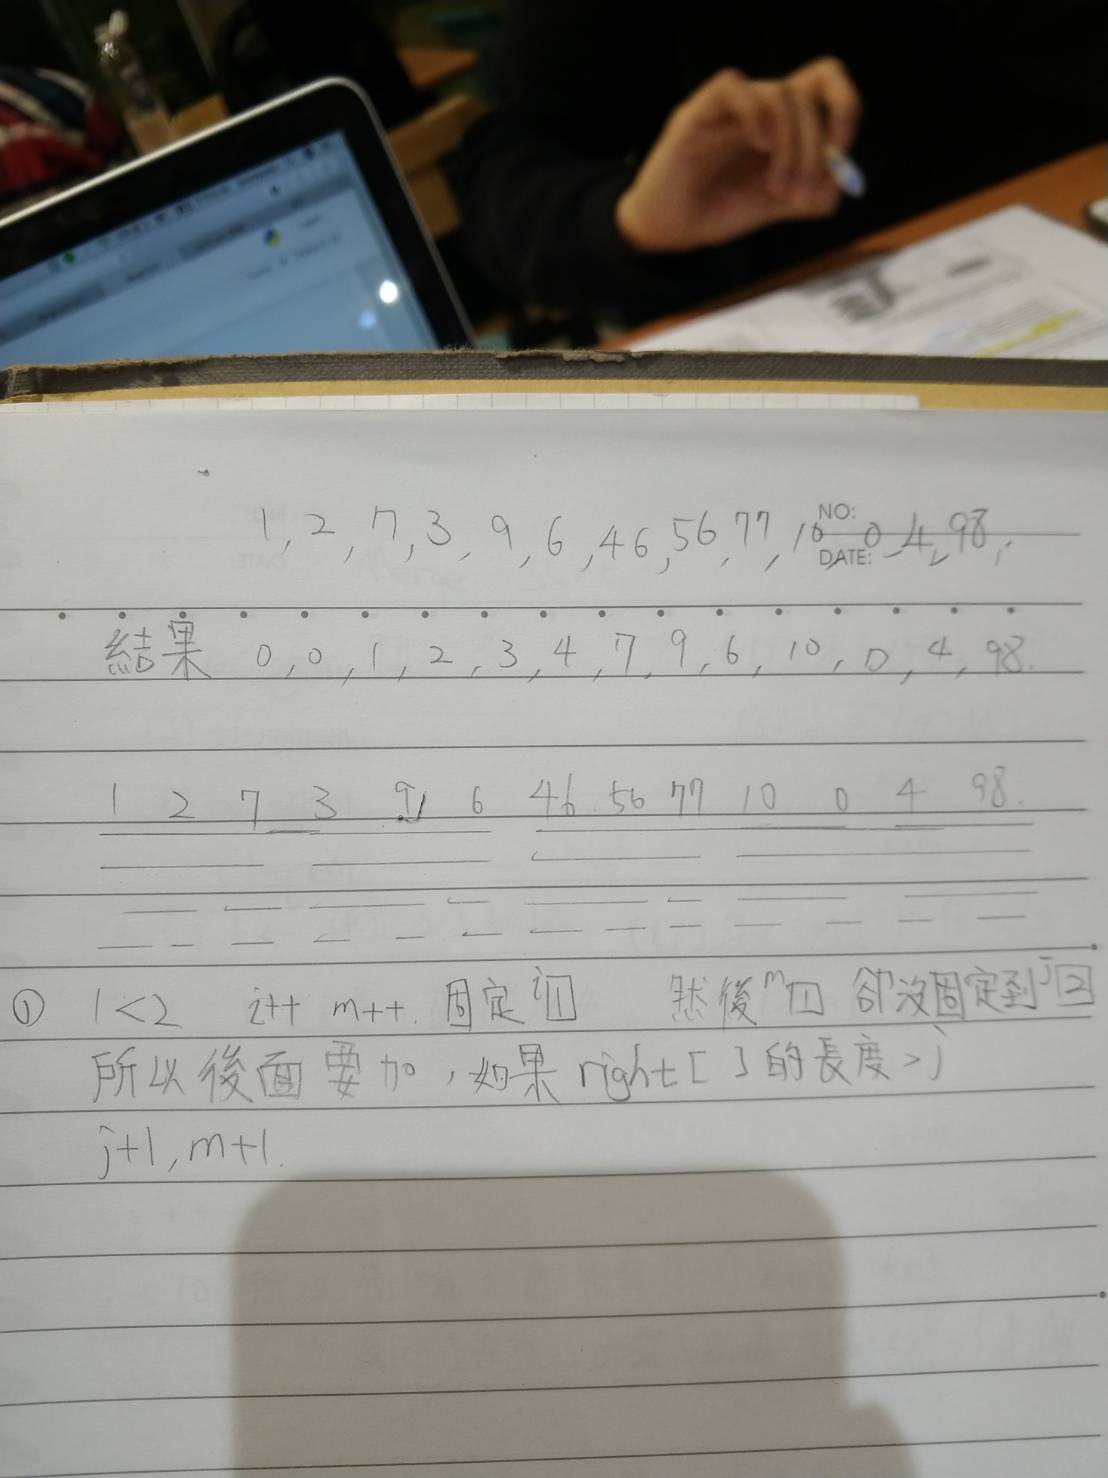 1, 2, 7, 3, 9, 6, 46, 56, 77, 10, 0, 4, 98,
NO:
DATE:
結果 0, 0, 1, 2, 3, 4, 7, 9, 6, 10, 0, 4, 98.
1 2 7 3 9 6 46 56 77 10 0 4 98.
① 1<2 i++ m++. 固定i 1 然後m 1 卻沒固定到j 2
所以後面要加,如果 right[ ] 的長度>j
j+1, m+1.